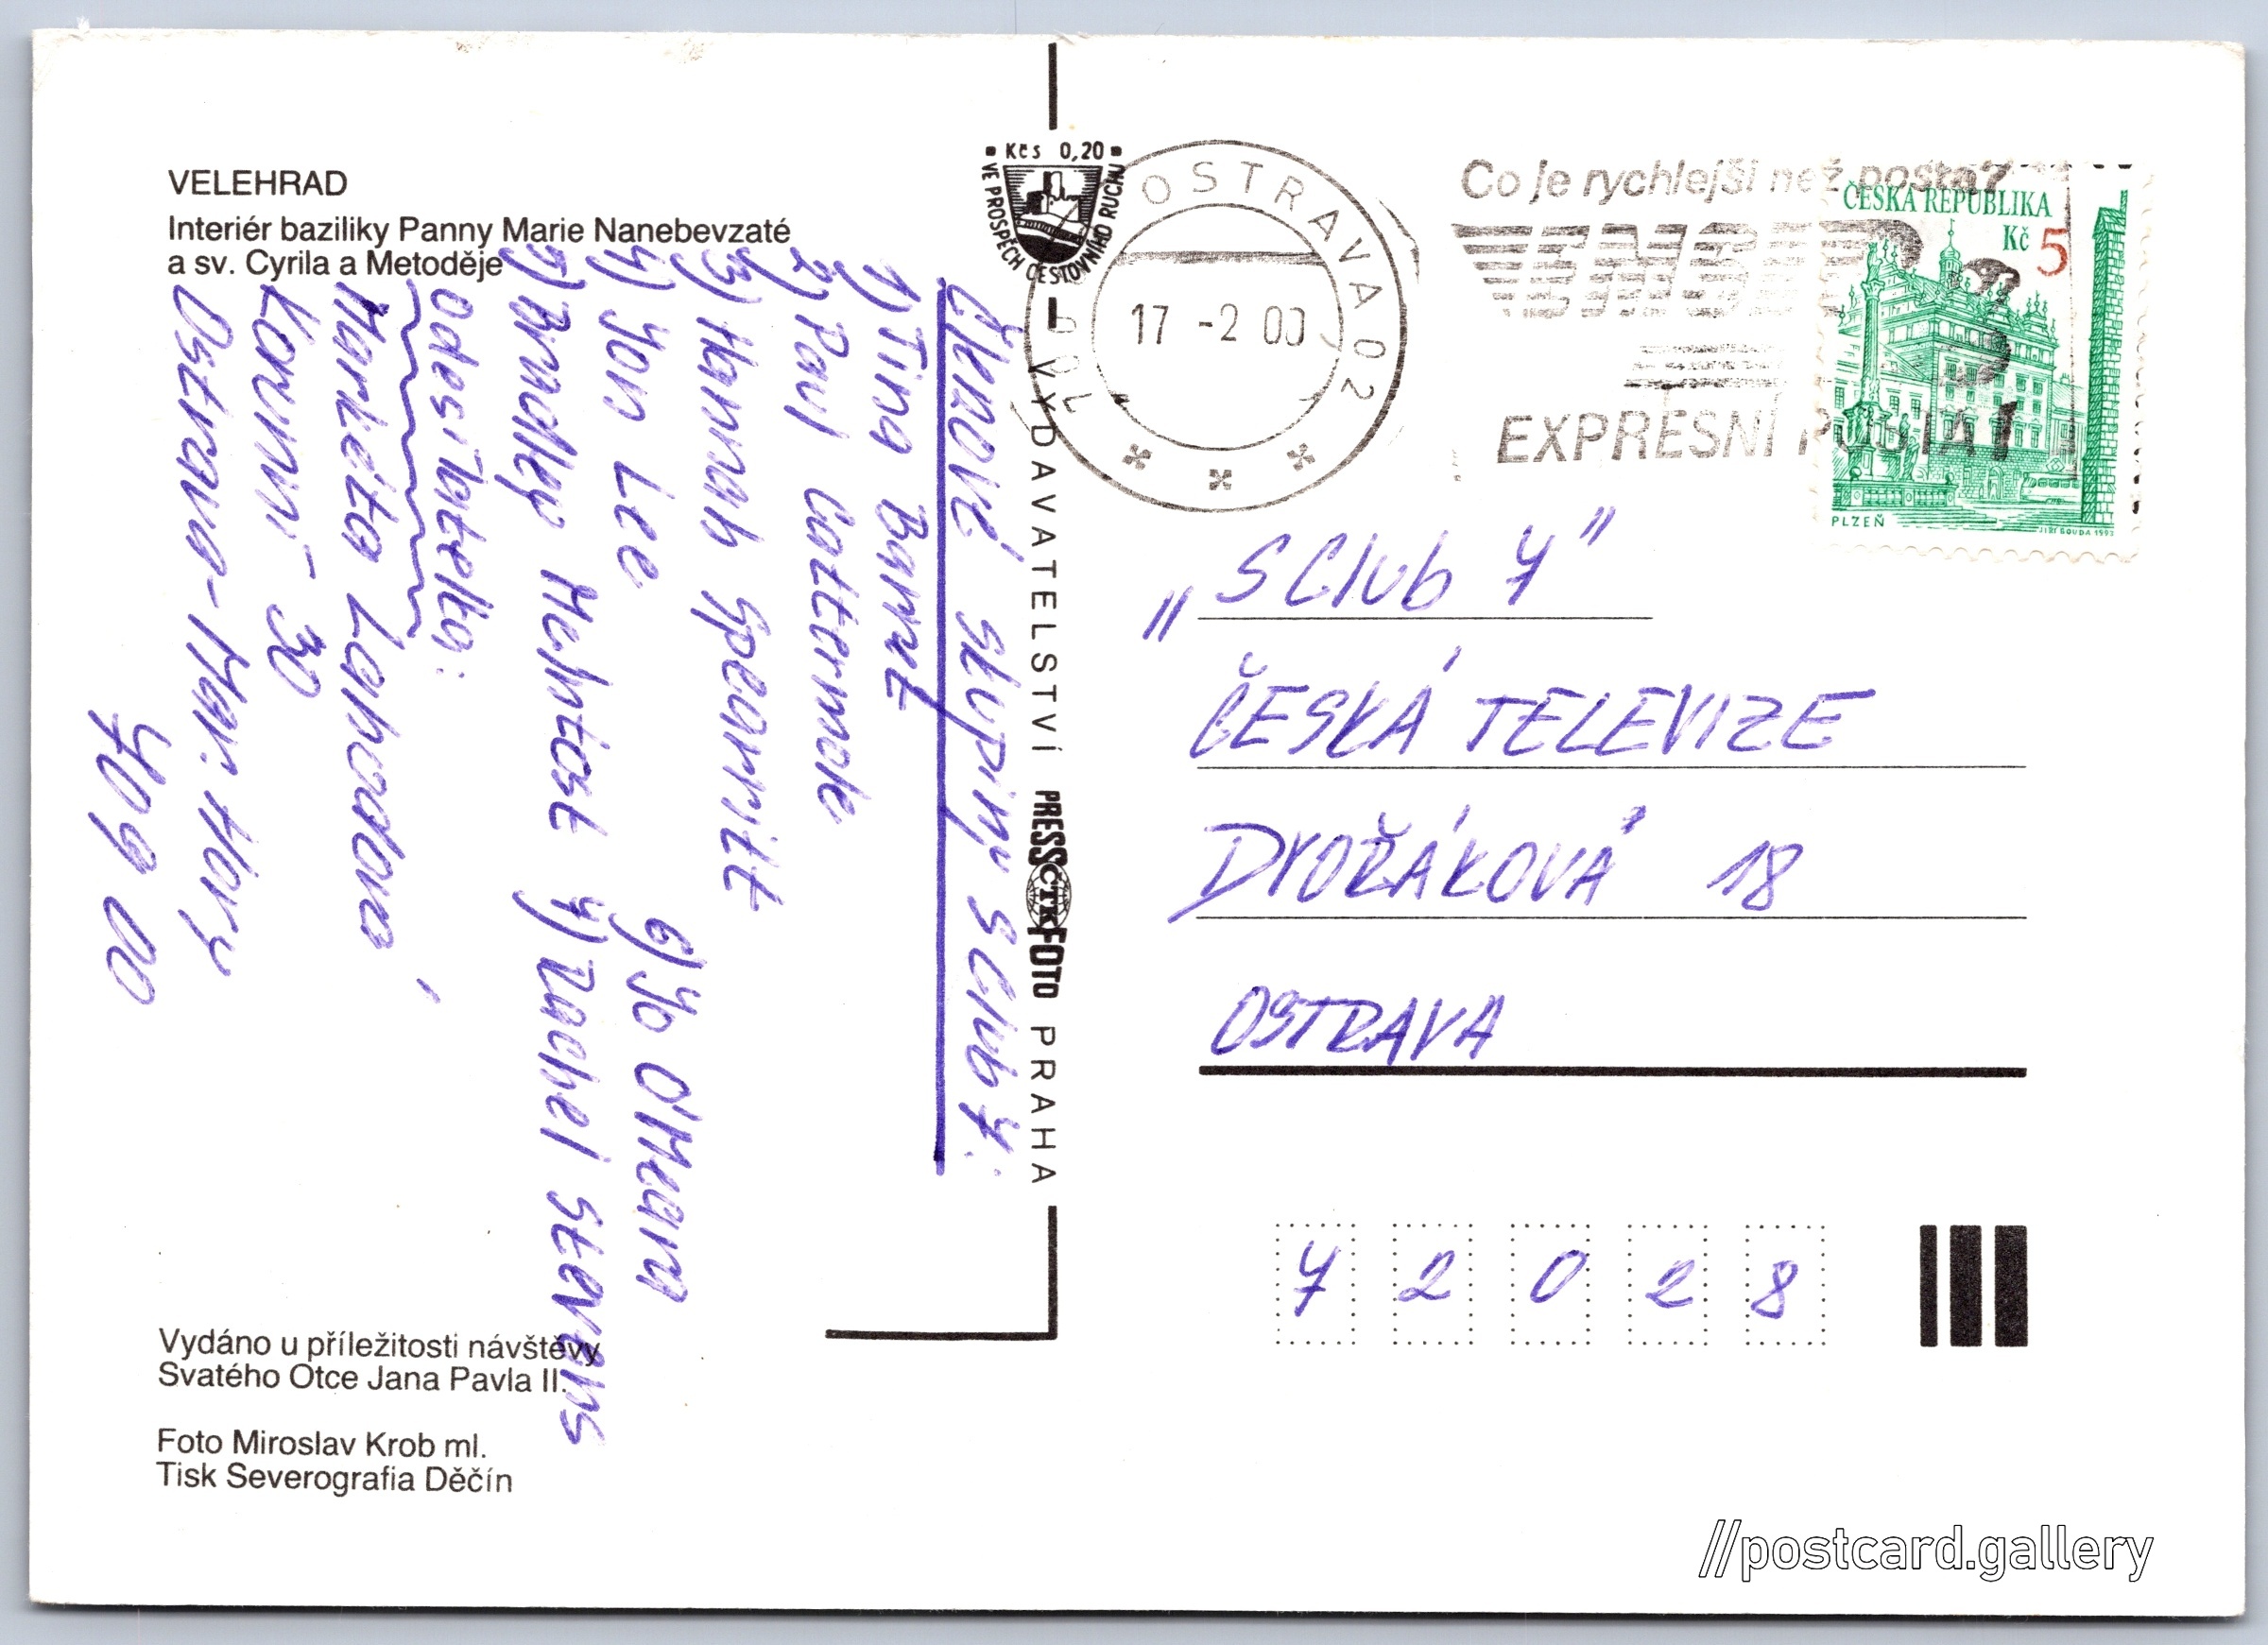 VELEHRAD
Interiér baziliky Panny Marie Nanebevzaté
a sv. Cyrila a Metoděje
Členové skupiny S Club 7:
1) Tina Barret
2) Paul Cattermole
3) Hannah Spearritt
4) Jon Lee
5) Bradley McIntost
6) Jo O'Meara
7) Rachel Stevens
Odesílatelka:
Markéta Lahodová,
Korunní 30
Ostrava-Mar. Hory
709 00
Vydáno u příležitosti návštěvy
Svatého Otce Jana Pavla II.
Foto Miroslav Krob ml.
Tisk Severografia Děčín
Kčs 0,20
VE PROSPĚCH CESTOVNÍHO RUCHU
VYDAVATELSTVÍ PRESSČTKFOTO PRAHA
OSTRAVA 02
17 -2 00
Co je rychlejší než pošta?
EMS
EXPRESNÍ POŠTA
ČESKÁ REPUBLIKA
Kč 5
PLZEŇ
JIŘÍ BOUDA 1993
„S Club 7"
ČESKÁ TELEVIZE
DVOŘÁKOVÁ 18
OSTRAVA
72028
//postcard.gallery